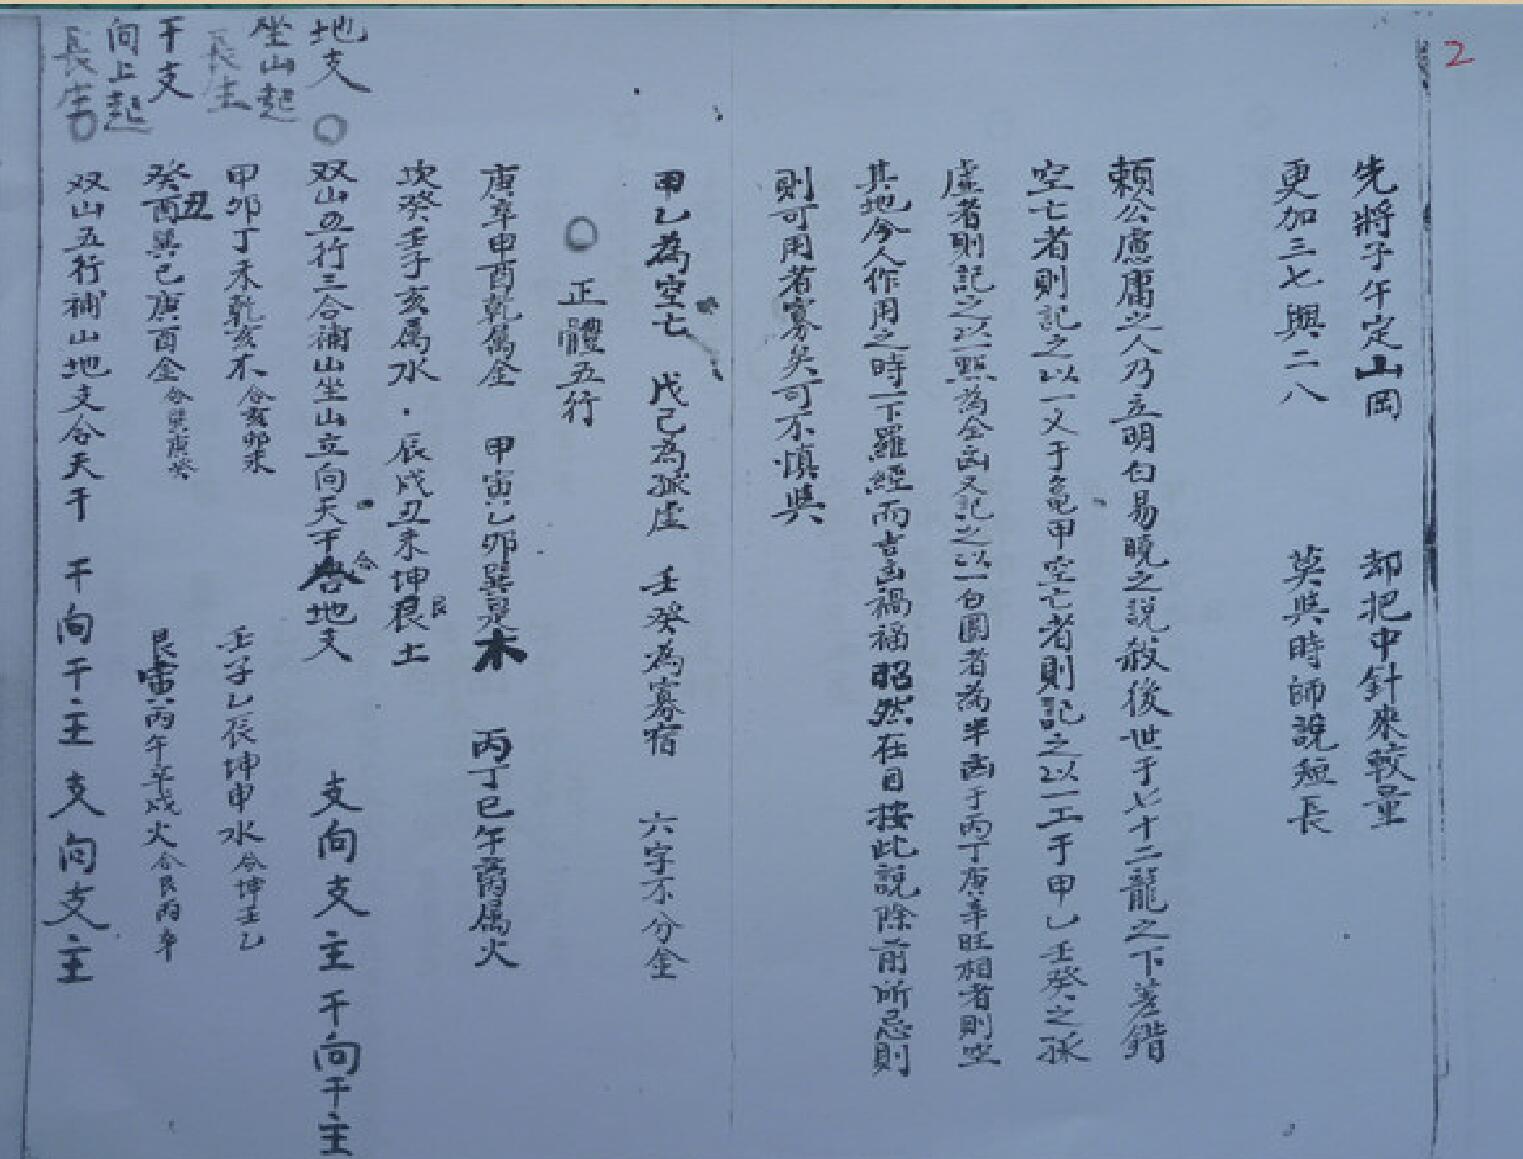 2
先將子午定山岡 却把中針來較量
更加三七與二八 莫與時師說短長
賴公慮庸之人乃立明白易曉之説殺後世于七十二龍之下差錯
空亡者則記之以一乂于龜甲空亡者則記之以一工于甲乙壬癸之孤
虛者則記之以一點為全凶又記之以一白圓者為半凶于丙丁庚辛旺相者則空
其地令人作用之時一下羅經而吉凶禍福昭然在目按此說除前所忌則
則可用者寡矣可不慎與
甲乙為空亡 戊己為孤虛 壬癸為寡宿 六字不分金
○ 正體五行
庚辛申酉乾属金 甲寅乙卯巽是木 丙丁巳午 属火
坎癸壬子亥属水·辰戌丑未坤艮土
地支 ○ 双山五行三合補山坐山立向天干合地支 支向支主 干向干主
坐山起 甲卯丁未乾亥木 合亥卯未 壬子乙辰坤申水 合坤壬乙
長生
干支 癸丑酉巽巳庚酉金 合巽庚癸 艮寅丙午辛戌火 合艮丙辛
向上起
長生 双山五行補山地支合天干 干向干主 支向支主